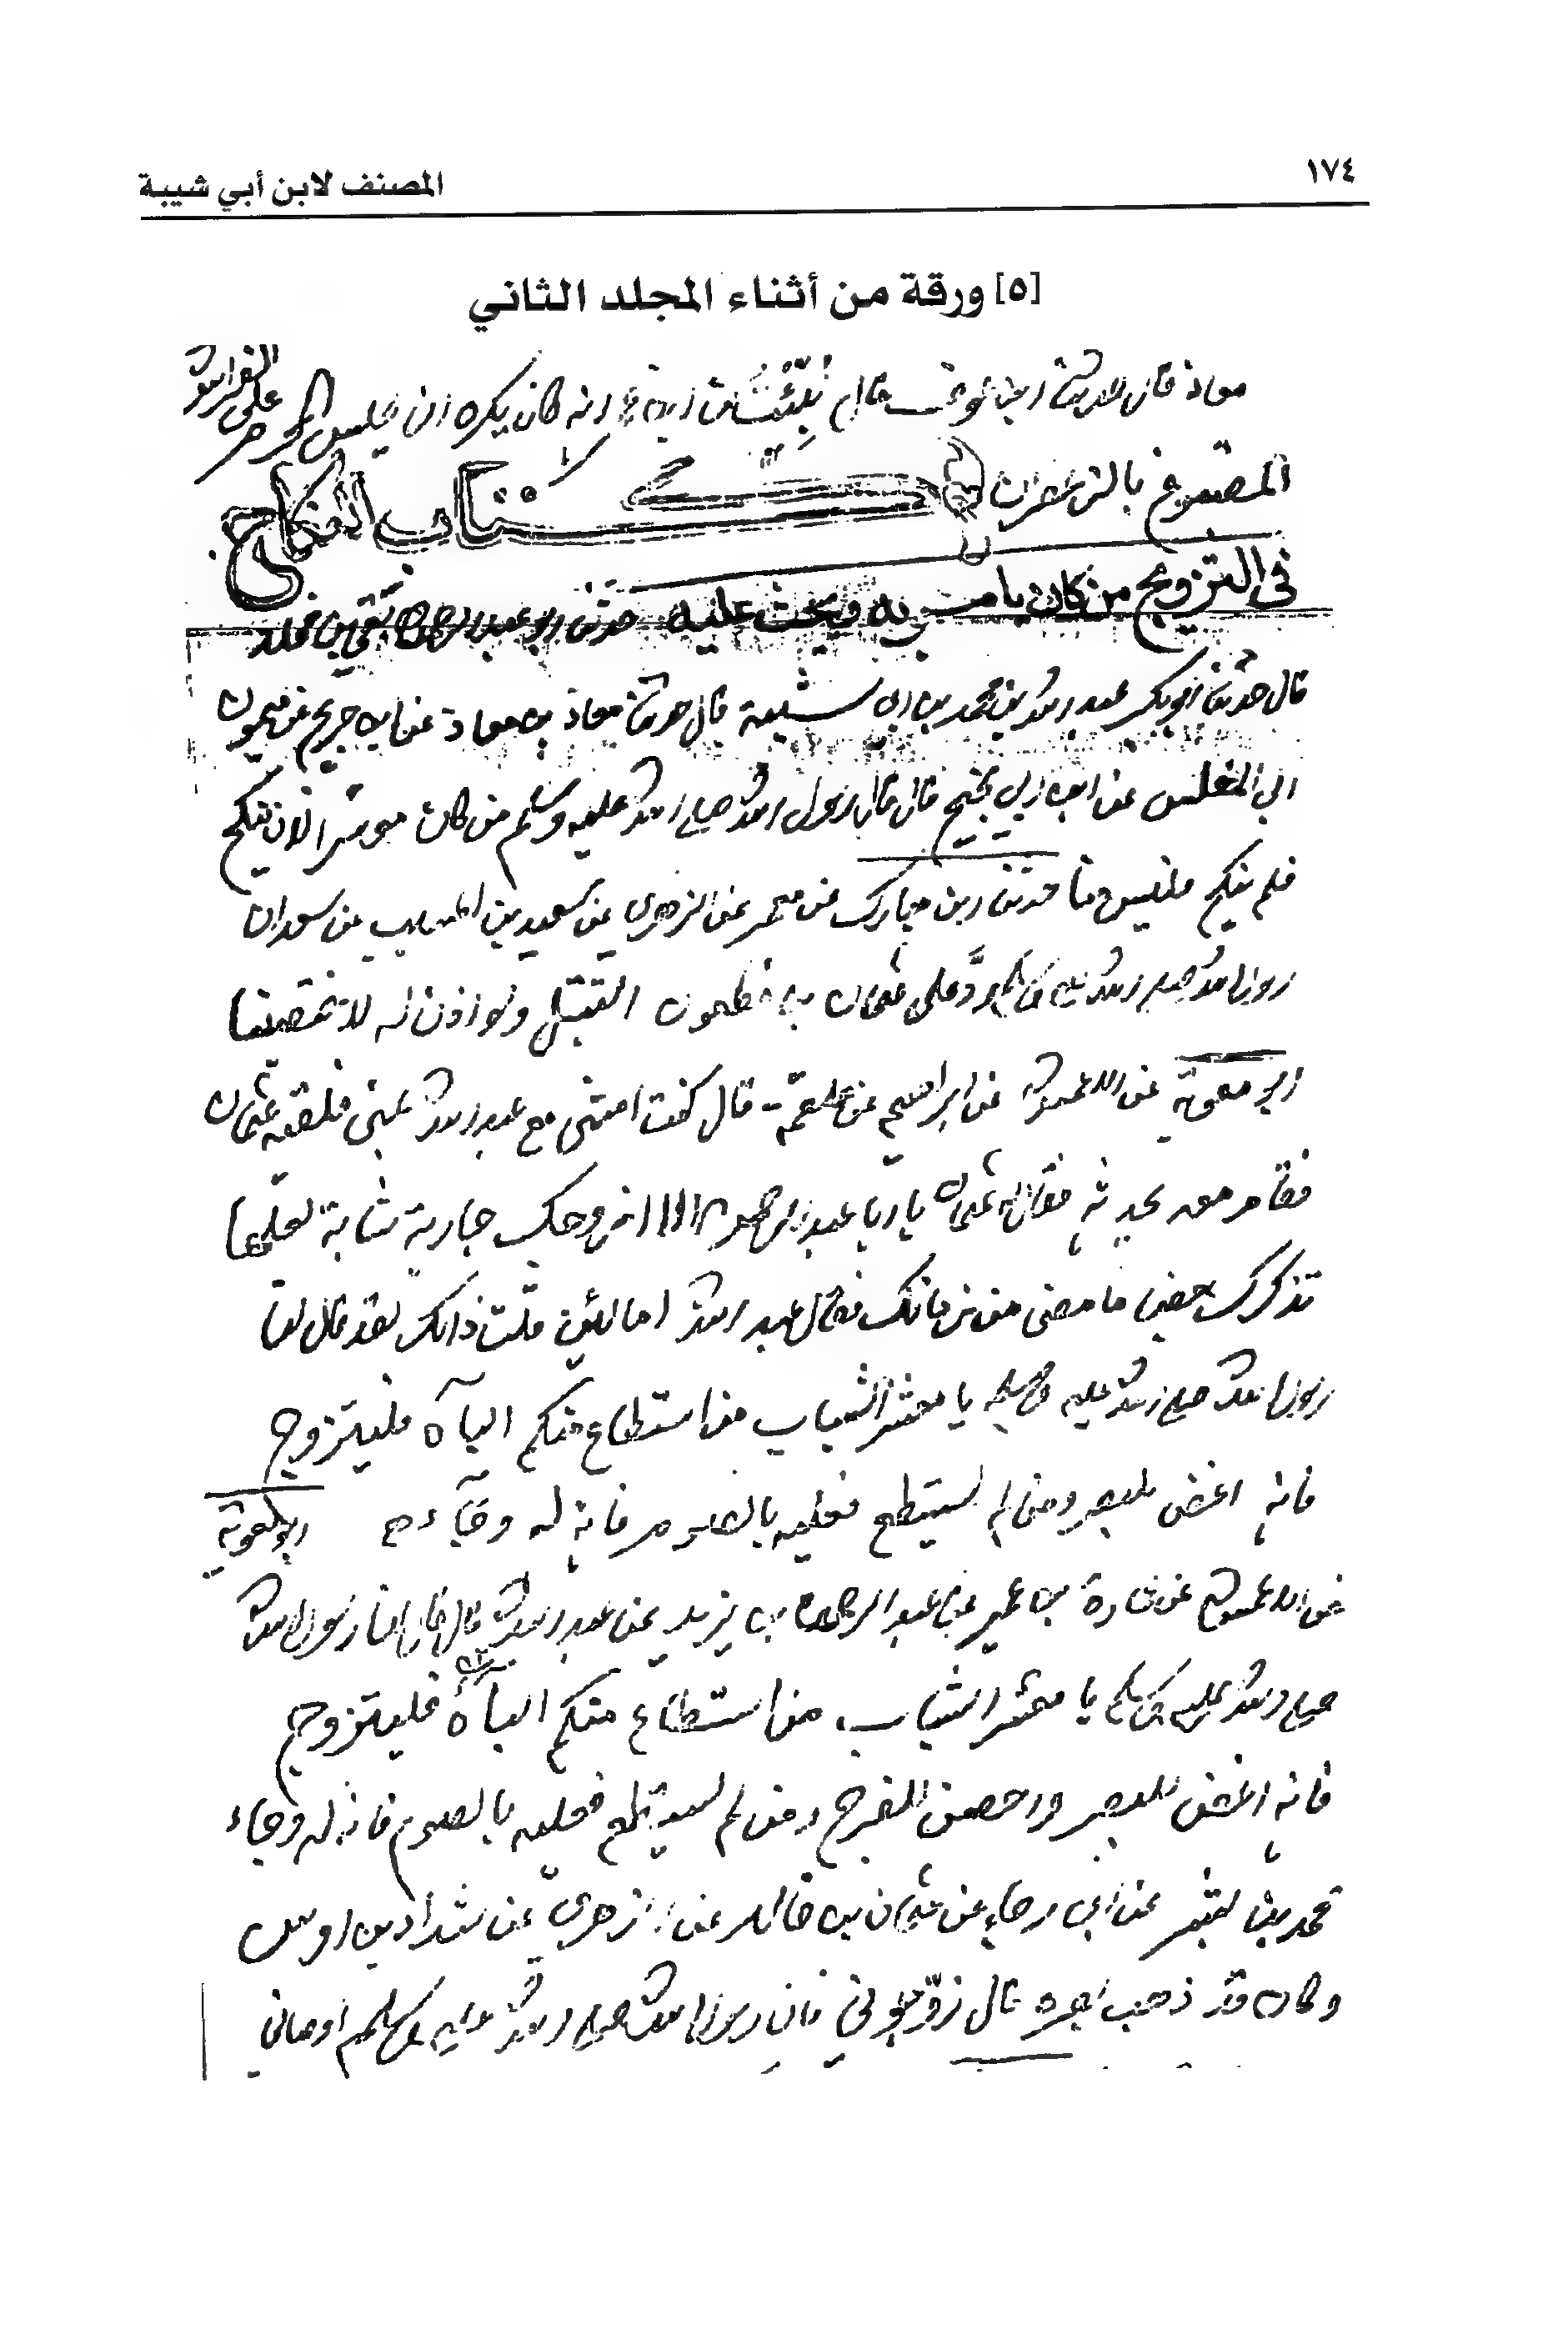 ١٧٤
المصنف لابن أبي شيبة
[٥] ورقة من أثناء المجلد الثاني
معاذ قال حدثنا ابن عون قال نبئت أن انه كان يكره ان يجلس المحرم على الفراش
المصبوغ بالزعفران كتاب النكاح
في التزويج من كان يامر به ويحث عليه حدثنا ابو عبد الرحمن بقي بن مخلد
قال حدثنا ابو بكر عبد الله بن محمد بن ابي شيبة قال حدثنا معاذ بن معاذ عن ابن جريج عن ميمون
ابي المغلس عن ابي نجيح قال قال رسول الله صلى الله عليه وسلم من كان موسرا لان ينكح
فلم ينكح فليس منا حدثنا ابن مبارك عن معمر عن الزهري عن سعيد بن المسيب عن سعد ان
رسول الله صلى الله عليه وسلم رد على عثمان بن مظعون التبتل ولو اذن له لاختصينا
ابو معوية عن الاعمش عن ابراهيم عن علقمة قال كنت امشي مع عبد الله بمنى فلقيه عثمان
فقام معه يحدثه فقال له عثمان يا ابا عبد الرحمن الا ازوجك جارية شابة لعلها
تذكرك بعض ما مضى من زمانك فقال عبد الله اما لئن قلت ذاك لقد قال لنا
رسول الله صلى الله عليه وسلم يا معشر الشباب من استطاع منكم الباآه فليتزوج
فانه اغض للبصر ومن لم يستطع فعليه بالصوم فانه له وجآء ابو معوية
عن الاعمش عن عمارة بن عمير عن عبد الرحمن بن يزيد عن عبد الله قال قال لنا رسول الله
صلى الله عليه وسلم يا معشر الشباب من استطاع منكم الباآة فليتزوج
فانه اغض للبصر واحصن للفرج ومن لم يستطع فعليه بالصوم فانه له وجاء
محمد بن بشر عن ابي رجاء عن عثمان بن خالد عن الزهري عن شداد بن اوس
وكان قد ذهب بصره قال زوجوني فان رسول الله صلى الله عليه وسلم اوصاني